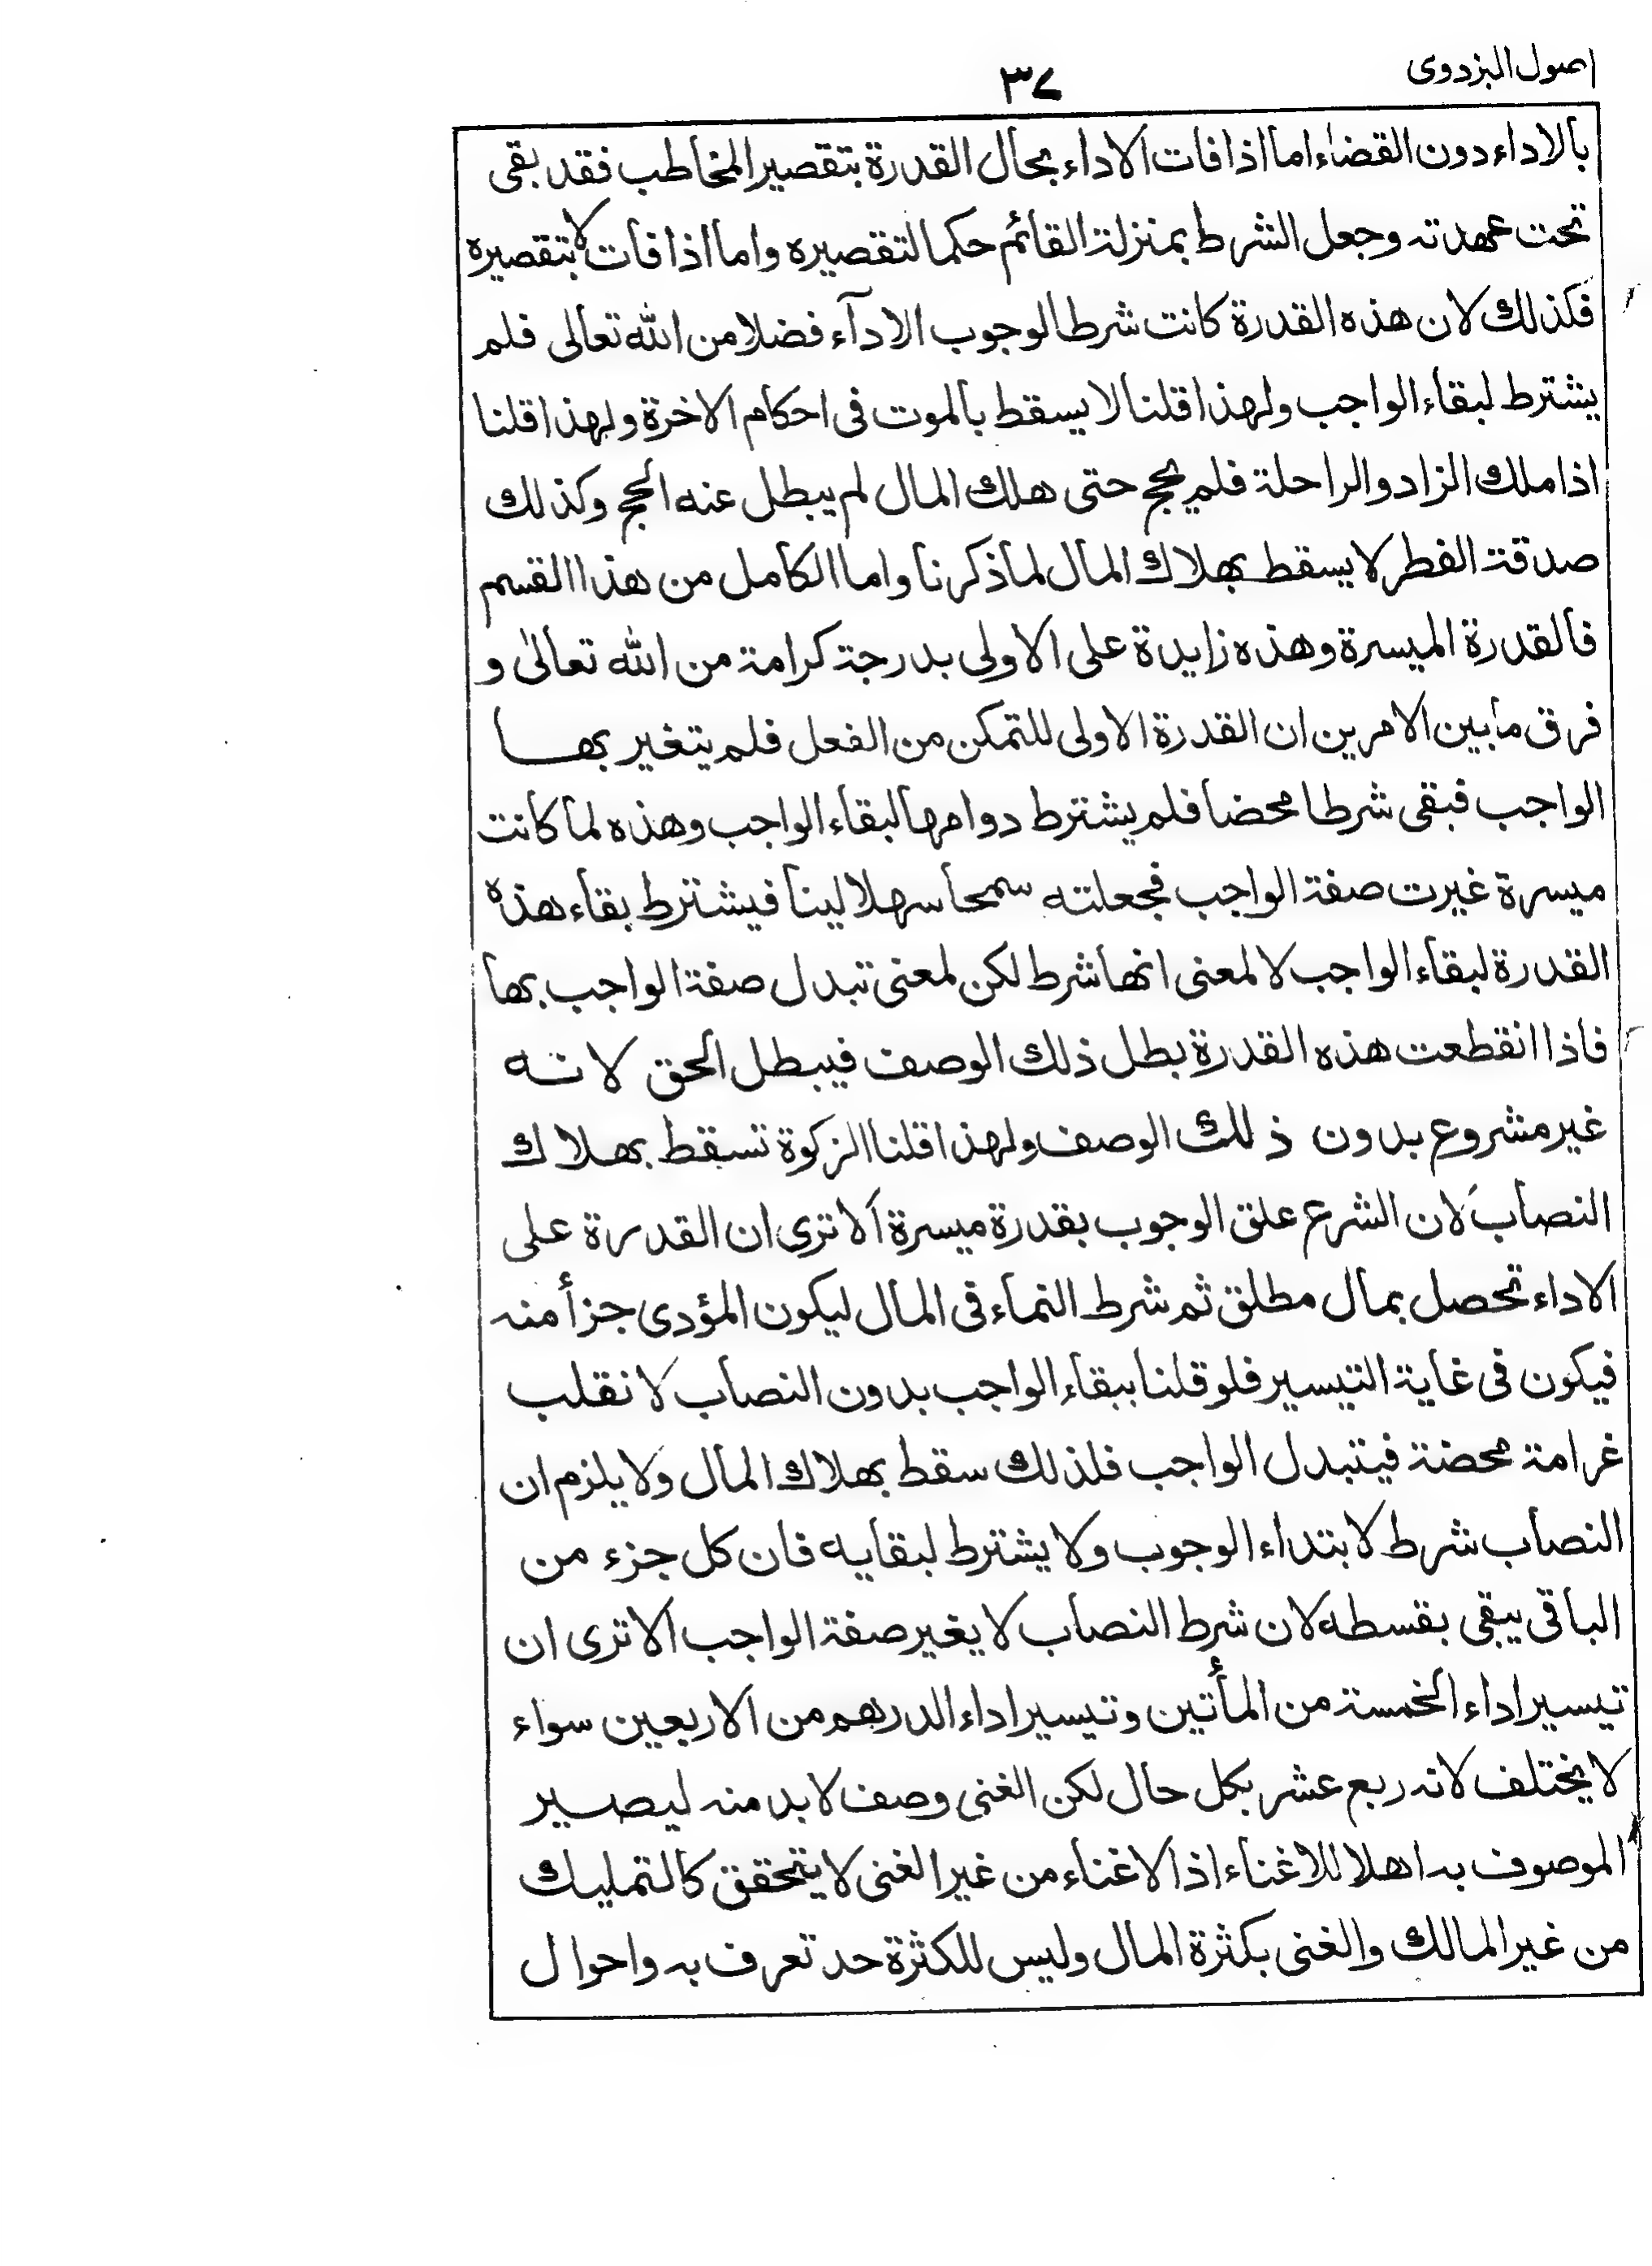 اصول البزدوى
٣٧
بالاداء دون القضاء اما اذا فات الاداء بحال القدرة بتقصير المخاطب فقد بقى
تحت عهدته وجعل الشرط بمنزلة القائم حكما لتقصيره واما اذا فات لا بتقصيره
فكذلك لان هذه القدرة كانت شرطا لوجوب الادآء فضلا من الله تعالى فلم
يشترط لبقاء الواجب ولهذا قلنا لا يسقط بالموت فى احكام الاخرة ولهذا قلنا
اذا ملك الزاد والراحلة فلم يحج حتى هلك المال لم يبطل عنه الحج وكذلك
صدقة الفطر لا يسقط بهلاك المال لما ذكرنا واما الكامل من هذا القسم
فالقدرة الميسرة وهذه زايدة على الاولى بدرجة كرامة من الله تعالىٰ و
فرق ما بين الامرين ان القدرة الاولى للتمكن من الفعل فلم يتغير بها
الواجب فبقى شرطا محضا فلم يشترط دوامها لبقاء الواجب وهذه لما كانت
ميسرة غيرت صفة الواجب فجعلته سمحا سهلا لينا فيشترط بقاء هذه
القدرة لبقاء الواجب لا لمعنى انها شرط لكن لمعنى تبدل صفة الواجب بها
فاذا انقطعت هذه القدرة بطل ذلك الوصف فيبطل الحق لانه
غير مشروع بدون ذلك الوصف ولهذا قلنا الزكوة تسقط بهلاك
النصاب لان الشرع علق الوجوب بقدرة ميسرة ألا ترى ان القدرة على
الاداء تحصل بمال مطلق ثم شرط النماء فى المال ليكون المؤدى جزأ منه
فيكون فى غاية التيسير فلو قلنا ببقاء الواجب بدون النصاب لانقلب
غرامة محضة فيتبدل الواجب فلذلك سقط بهلاك المال ولا يلزم ان
النصاب شرط لابتداء الوجوب ولا يشترط لبقايه فان كل جزء من
الباقى يبقى بقسطه لان شرط النصاب لا يغير صفة الواجب الا ترى ان
تيسير اداء الخمسة من المأتين وتيسير اداء الدرهم من الاربعين سواء
لا يختلف لانه ربع عشر بكل حال لكن الغنى وصف لا بد منه ليصير
الموصوف به اهلا للاغناء اذ الاغناء من غير الغنى لا يتحقق كالتمليك
من غير المالك والغنى بكثرة المال وليس للكثرة حد تعرف به واحوال